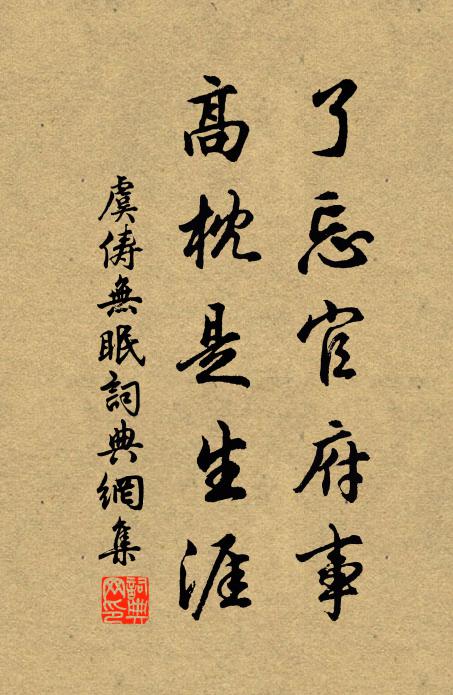 了忘官府事
高枕是生涯
虞儔無眠詞典網集
詞典
网印